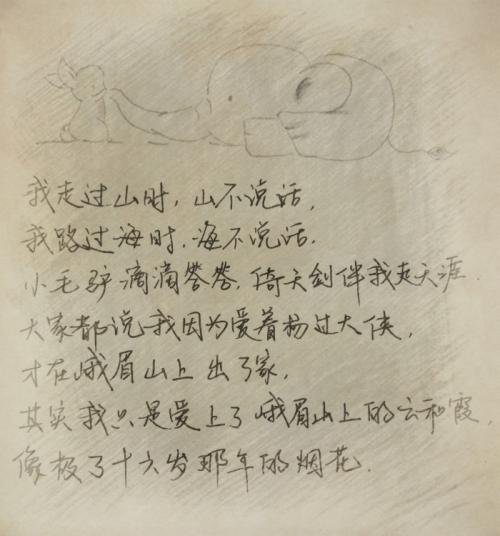 我走过山时，山不说话，
我路过海时，海不说话.
小毛驴滴滴答答，倚天剑伴我走天涯.
大家都说我因为爱着杨过大侠，
才在峨眉山上出了家，
其实我只是爱上了峨眉山上的云和霞，
像极了十六岁那年的烟花.